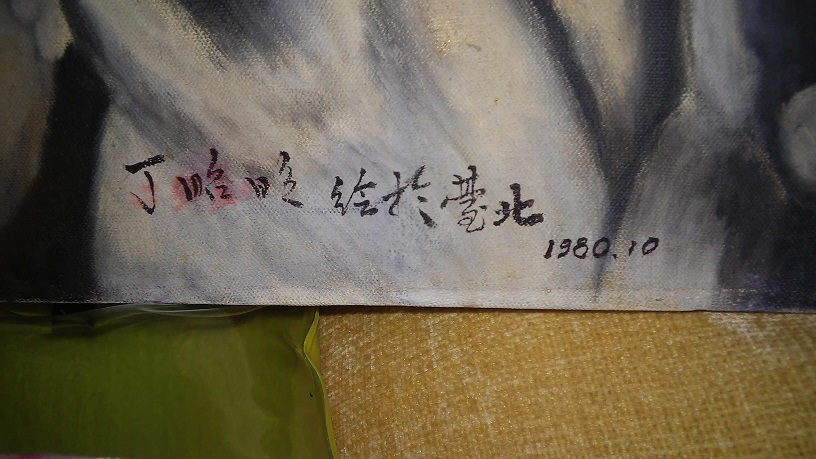 丁 绘於臺北
1980.10